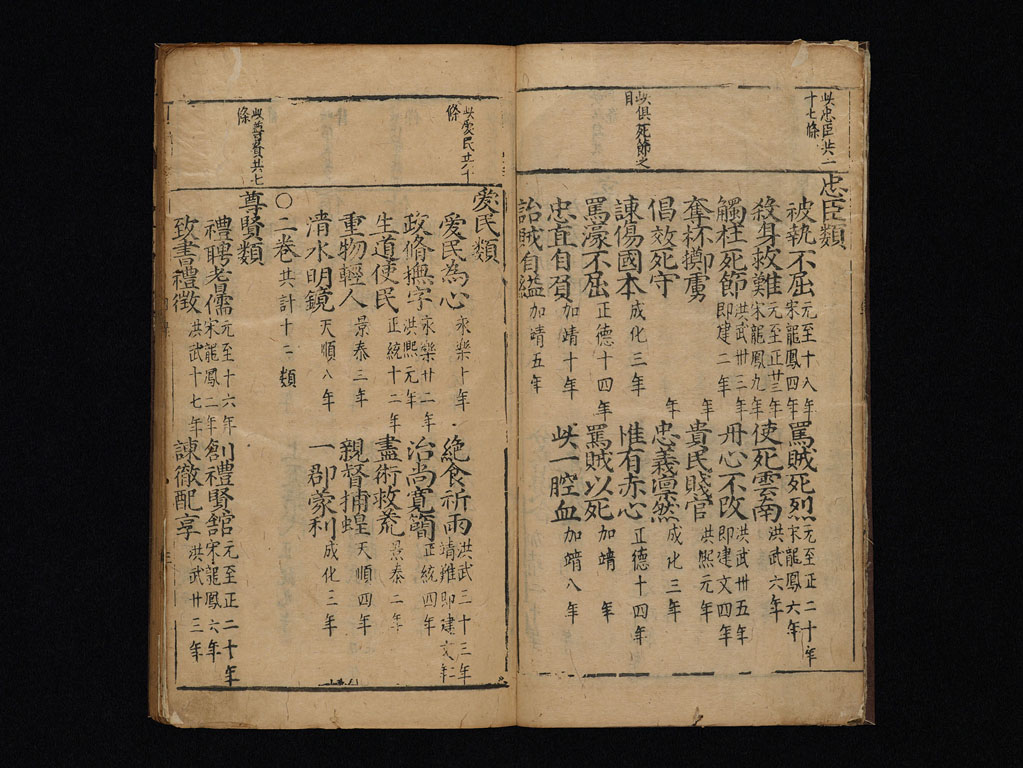 此忠臣共二
十七條
忠臣類
被執不屈 元至十八年
宋龍鳳四年
罵賊死烈 元至正二十年
宋龍鳳六年
殺身救難 元至正廿三年
宋龍鳳九年
使死雲南 洪武六年
觸柱死節 洪武卅三年
即建二年
丹心不改 洪武卅五年
即建文四年
奪杯擲虜 年
貴民賤官 洪熙元年
倡效死守 年
忠義凛然 成化三年
此俱死節之
目
諫傷國本 成化三年
惟有赤心 正德十四年
罵濠不屈 正德十四年
罵賊以死 加靖 年
忠直自負 加靖十年
此一腔血 加靖八年
詒賊自縊 加靖五年
此愛民共十
條
爱民類
愛民為心 永樂十年
絶食祈雨 洪武三十三年
靖難即建文二年
政脩撫字 永樂廿二年
洪熙元年
治尚寛簡 正統四年
生道使民 正統十二年
盡術救荒 景泰二年
重物輕人 景泰三年
親督捕蝗 天順四年
清水明鏡 天順八年
一郡蒙利 成化三年
○二卷 共計十二類
此尊賢共七
條
尊賢類
禮聘老儒 元至十六年
宋龍鳳二年
創禮賢舘 元至正二十年
宋龍鳳六年
致書禮徴 洪武十七年
諫徹配享 洪武廿三年